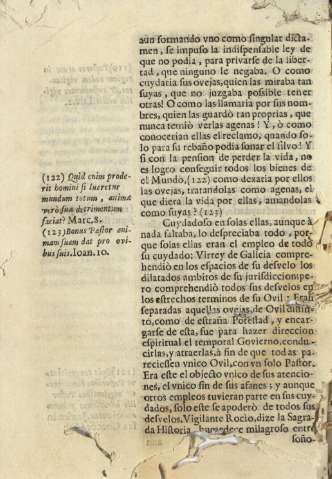 aun formando vno como singular dicta-
men, se impuso la indispensable ley de
que no podia, para privarse de la liber-
tad, que ninguno le negaba. O como
cuydaria sus ovejas, quien las miraba tan
suyas, que no juzgaba possible tener
otras! O como las llamaria por sus nom-
bres, quien las guardò tan proprias, que
nunca temiò verlas agenas! Y, ò como
conocerian ellas el reclamo, quando so-
lo para su rebaño podia sonar el silvo! Y
si con la pension de perder la vida, no
es logro conseguir todos los bienes de
el Mundo, (122) como dexaria por ellos
las ovejas, tratandolas como agenas, el
que diera la vida por ellas, amandolas
como suyas? (123)
Cuydadoso en solas ellas, aunque à
nada faltaba, lo despreciaba todo, por-
que solas ellas eran el empleo de todo
su cuydado: Virrey de Galicia compre-
hendiò en los espacios de su desvelo los
dilatados ambitos de su jurisdiccion: pe-
ro comprehendiò todos sus desvelos en
los estrechos terminos de su Ovil: Eran
separadas aquellas ovejas, de Ovil distin-
to, como de estraña Potestad, y encar-
garse de esta, fue para hazer direccion
espiritual el temporal Govierno, condu-
cirlas, y atraerlas, à fin de que todas pa-
reciessen vnico Ovil, con vn solo Pastor.
Era este el objecto vnico de sus atencio-
nes, el vnico fin de sus afanes; y aunque
otros empleos tuvieran parte en sus cuy-
dados, solo este se apoderò de todos sus
desvelos. Vigilante Rocio, dize la Sagra-
da Historia, humedece milagroso entre
soño-
(122) Quid enim prode-
rit homini si lucretur
mundum totum, animæ
verò suæ detrimentum
faciat? Marc. 8.
(123) Bonus Pastor ani-
mam suam dat pro ovi-
bus suis. Ioan. 10.